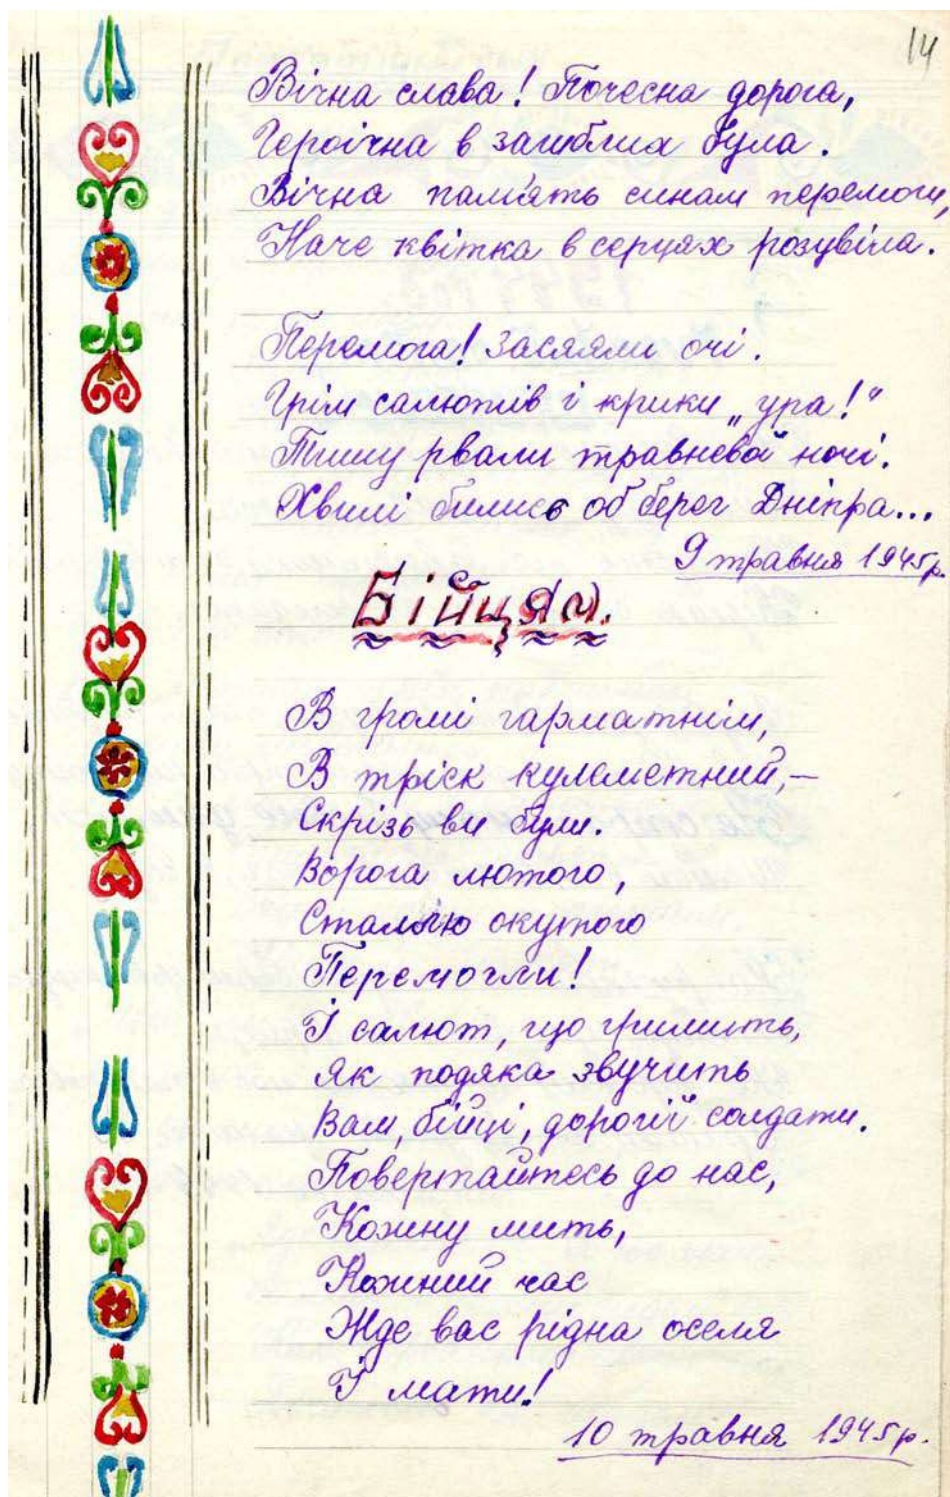 14
Вічна слава! Почесна дорога,
Героїчна в загиблих була.
Вічна пам'ять синам перемоги,
Наче квітка в серцях розцвіла.
Перемога! Засяяли очі.
Грім салютів і крики „ура!“
Тишу рвали травневої ночі.
Хвилі бились об берег Дніпра...
9 травня 1945р.
Бійцям.
В громі гарматнім,
В тріск кулеметний,—
Скрізь ви були.
Ворога лютого,
Сталлю окутого
Перемогли!
І салют, що гримить,
Як подяка звучить
Вам, бійці, дорогії солдати.
Повертайтесь до нас,
Кожну мить,
Кожний час
Жде вас рідна оселя
Й мати!
10 травня 1945р.